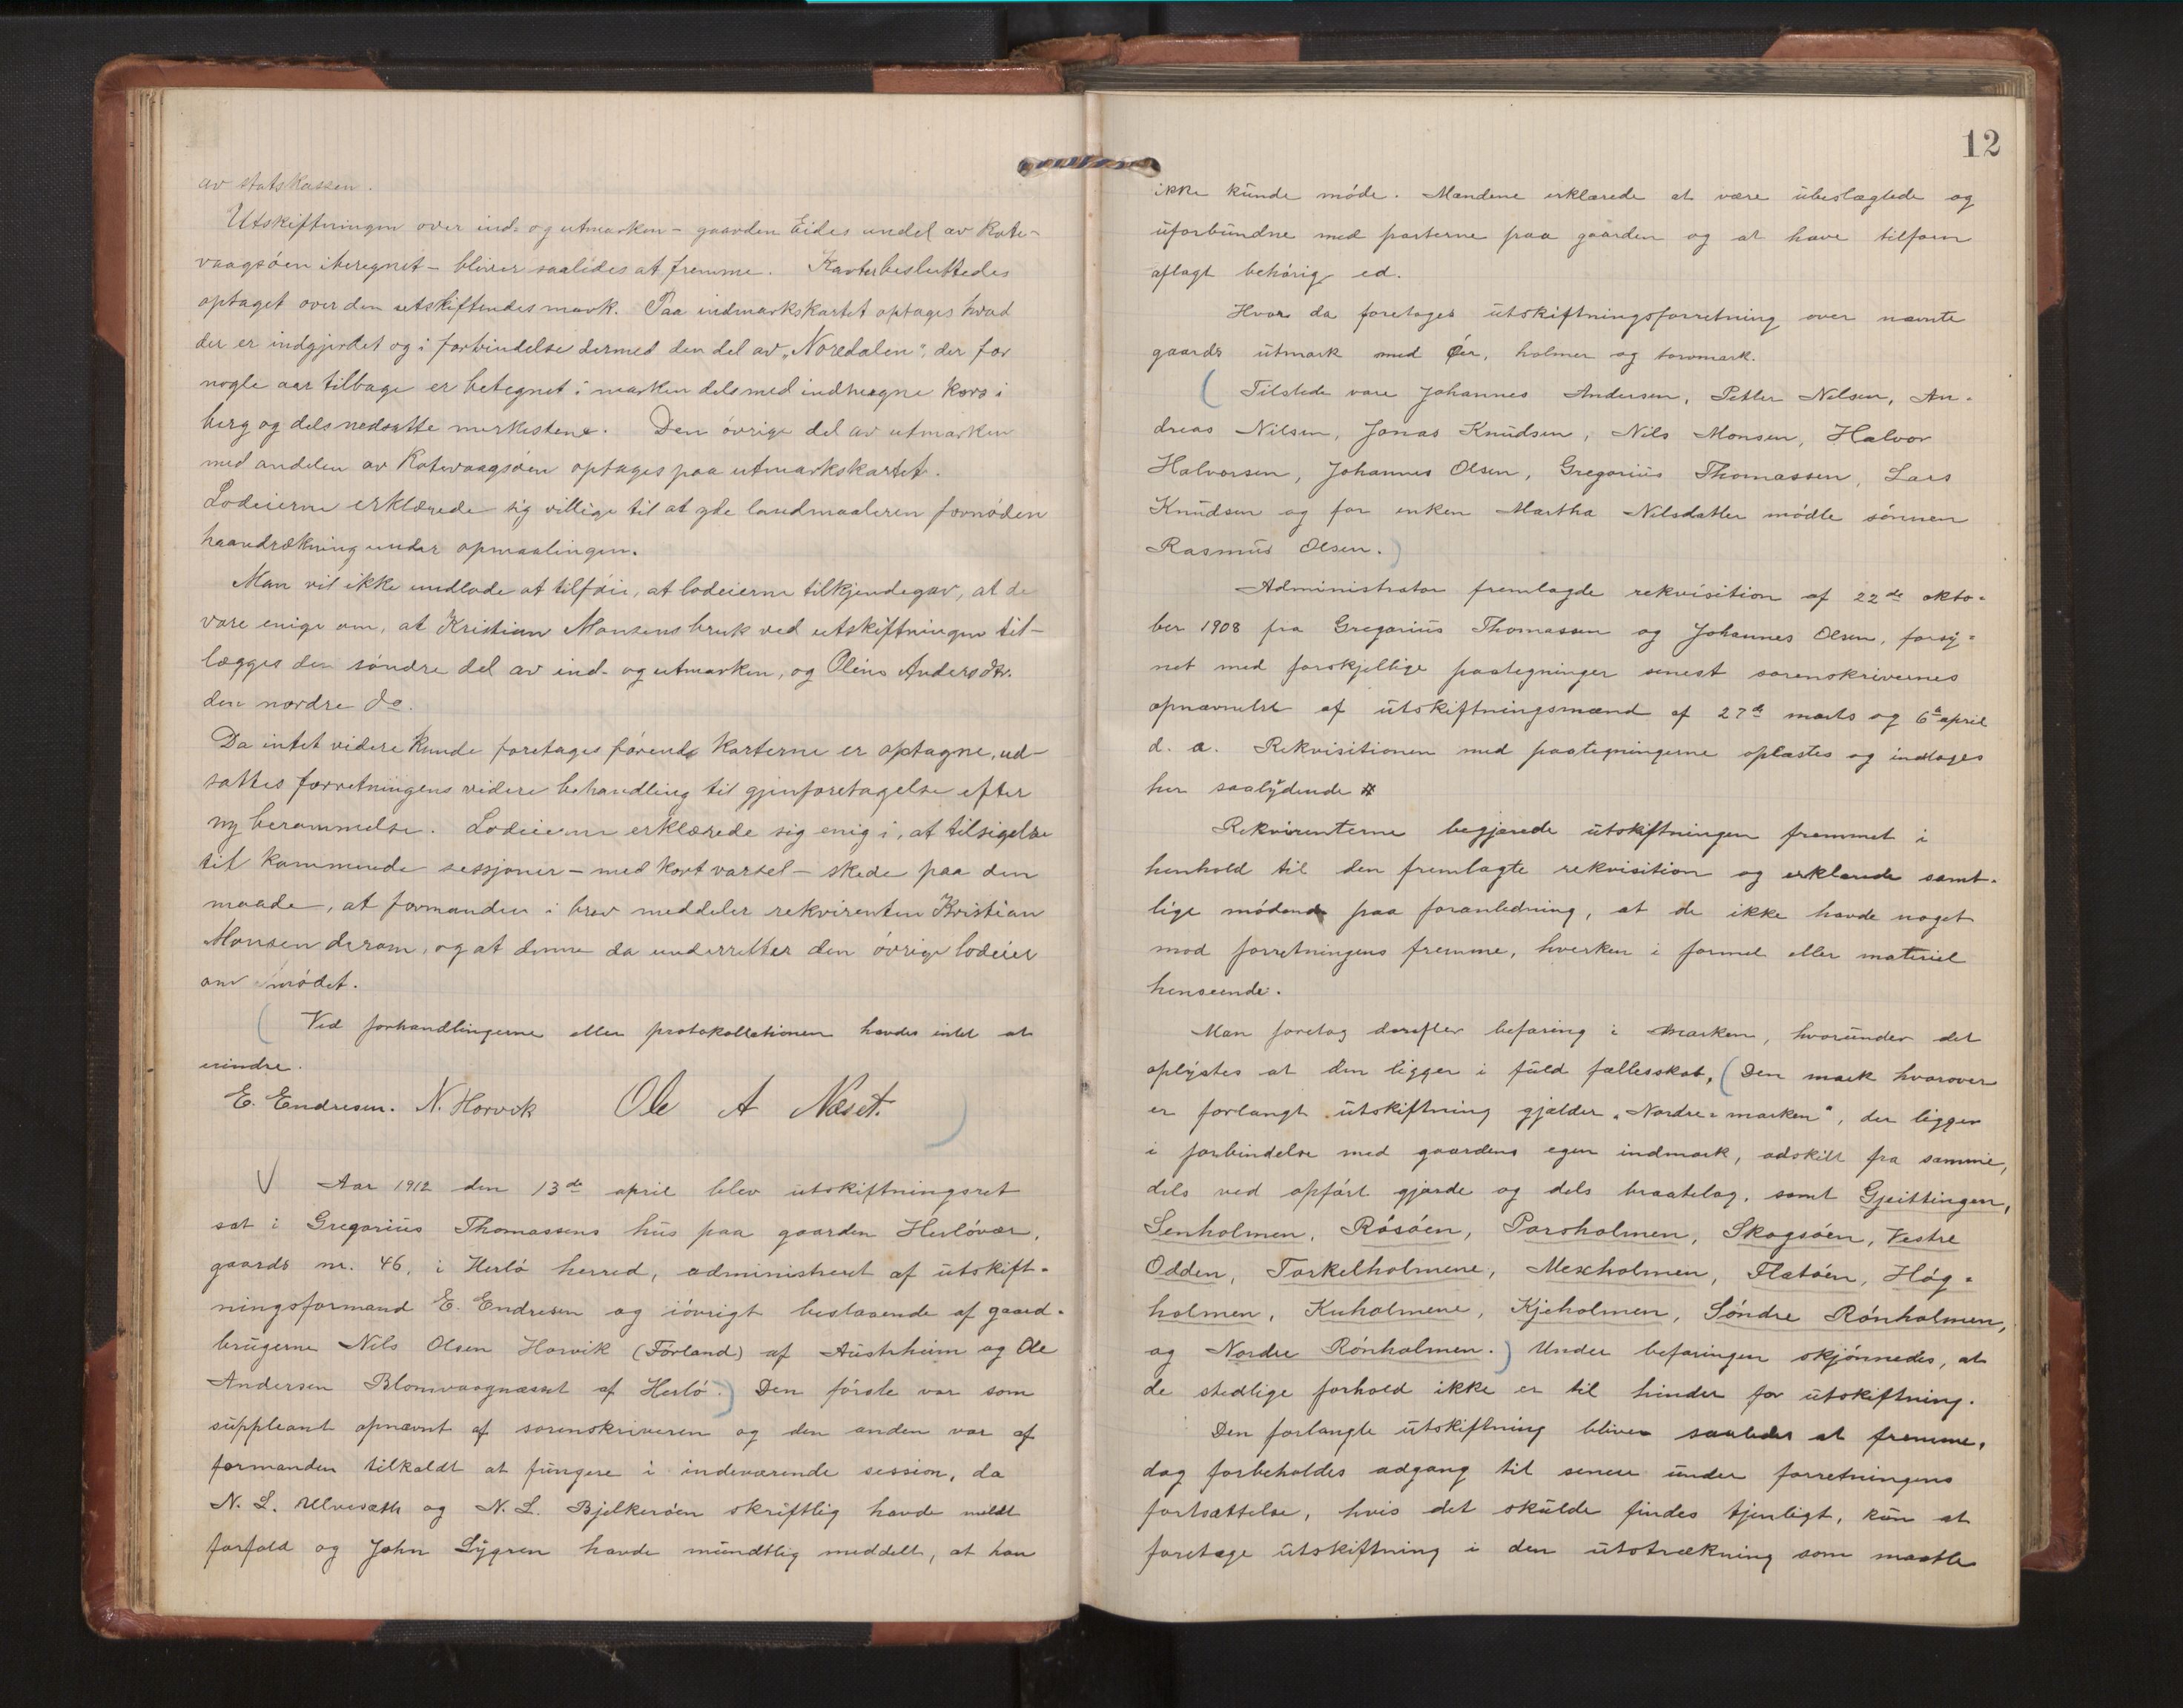 av statskassen.
Utskiftningen over ind- og utmarken - gaarden Eides andel av Kote-
vaagsöen iberegnet - bliver saaledes at fremme. Karter besluttedes
optaget over den utskiftendes mark. Paa indmarkskartet optages hvad
der er indgjerdet og i forbindelse dermed den del av "Noredalen", der for
nogle aar tilbage er betegnet i marken dels med indhugne kors i
berg og dels nedsatte merkestene. Den övrige del av utmarken
med andelen av Kotevaagsöen optages paa utmarkskartet.
Lodeierne erklærede sig villige til at yde landmaaleren fornöden
haandrækning under opmaalingen.
Man vil ikke undlade at tilföie, at lodeierne tilkjendegav, at de
vare enige om, at Kristian Monsens bruk ved utskiftningen til-
lægges den söndre del av ind- og utmarken, og Oline Andersdtr.
den nordre do.
Da intet videre kunde foretages förend karterne er optagne, ud-
sattes forretningens videre behandling til gjenforetagelse efter
ny berammelse. Lodeierne erklærede sig enig i, at tilsigelse
til kommende sessjoner - med kort varsel - skede paa den
maade, at formanden i brev meddeler rekvirenten Kristian
Monsen derom, og at denne da underretter den övrige lodeier
om mödet.
Ved forhandlingerne eller protokollationen havdes intet at
erindre.
E. Endresen. N. Horvik Ole A Næset.
Aar 1912 den 13de april blev utskiftningsret
sat i Gregorius Thomassens hus paa gaarden Herlövær,
gaards nr. 46, i Herlö herred, administreret af utskift-
ningsformand E. Endresen og iövrigt bestaaende af gaard-
brugerne Nils Olsen Horvik (Förland) af Austrheim og Ole
Andersen Blomvaagnæsset af Herlö.) Den förste var som
suppleant opnævnt af sorenskriveren og den anden var af
formanden tilkaldt at fungere i indeværende session, da
N. L. Ulvesæth og N. L. Bjelkeröen skriftlig havde meldt
forfald og John Lygren havde mundtlig meddelt, at han
12
ikke kunde möde. Mændene erklærede at være ubeslægtede og
uforbundne med parterne paa gaarden og at have tilforn
aflagt behörig ed.
Hvor da foretoges utskiftningsforretning over nævnte
gaards utmark med öer, holmer og torvmark.
(Tilstede vare Johannes Andersen, Petter Nilsen, An-
dreas Nilsen, Jonas Knudsen, Nils Monsen, Halvor
Halvorsen, Johannes Olsen, Gregorius Thomassen, Lars
Knudsen og for enken Martha Nilsdatter mödte sönnen
Rasmus Olsen.)
Administrator fremlagde rekvisition af 22de okto-
ber 1908 fra Gregorius Thomassen og Johannes Olsen, forsy-
net med forskjellige paategninger senest sorenskriverens
opnævnelse af utskiftningsmænd af 27de marts og 6te april
d. a. Rekvisitionen med paategningerne oplæstes og indtages
her saalydende #
Rekvirenterne begjærede utskiftningen fremmet i
henhold til den fremlagte rekvisition og erklærede samt-
lige mödende paa foranledning, at de ikke havde noget
mod forretningens fremme, hverken i formel eller materiel
henseende.
Man foretog derefter befaring i marken, hvorunder det
oplystes at den ligger i fuld fællesskab. (Den mark hvorover
er forlangt utskiftning gjælder "Nordre-marken", der ligger
i forbindelse med gaardens egen indmark, adskilt fra samme,
dels ved opfört gjærde og dels braatelag, samt Gjeittingen,
Senholmen, Rösöen, Porsholmen, Skogsöen, Vestre
Odden, Torkelholmene, Mexholmen, Flatöen, Hög-
holmen, Kuholmene, Kjeholmen, Söndre Rönholmen,
og Nordre Rönholmen.) Under befaringen skjönnedes, at
de stedlige forhold ikke er til hinder for utskiftning.
Den forlangte utskiftning bliver saaledes at fremme,
dog forbeholdes adgang til senere under forretningens
fortsættelse, hvis det skulde findes tjenligt, kun at
foretage utskiftning i den utstrækning som maatte